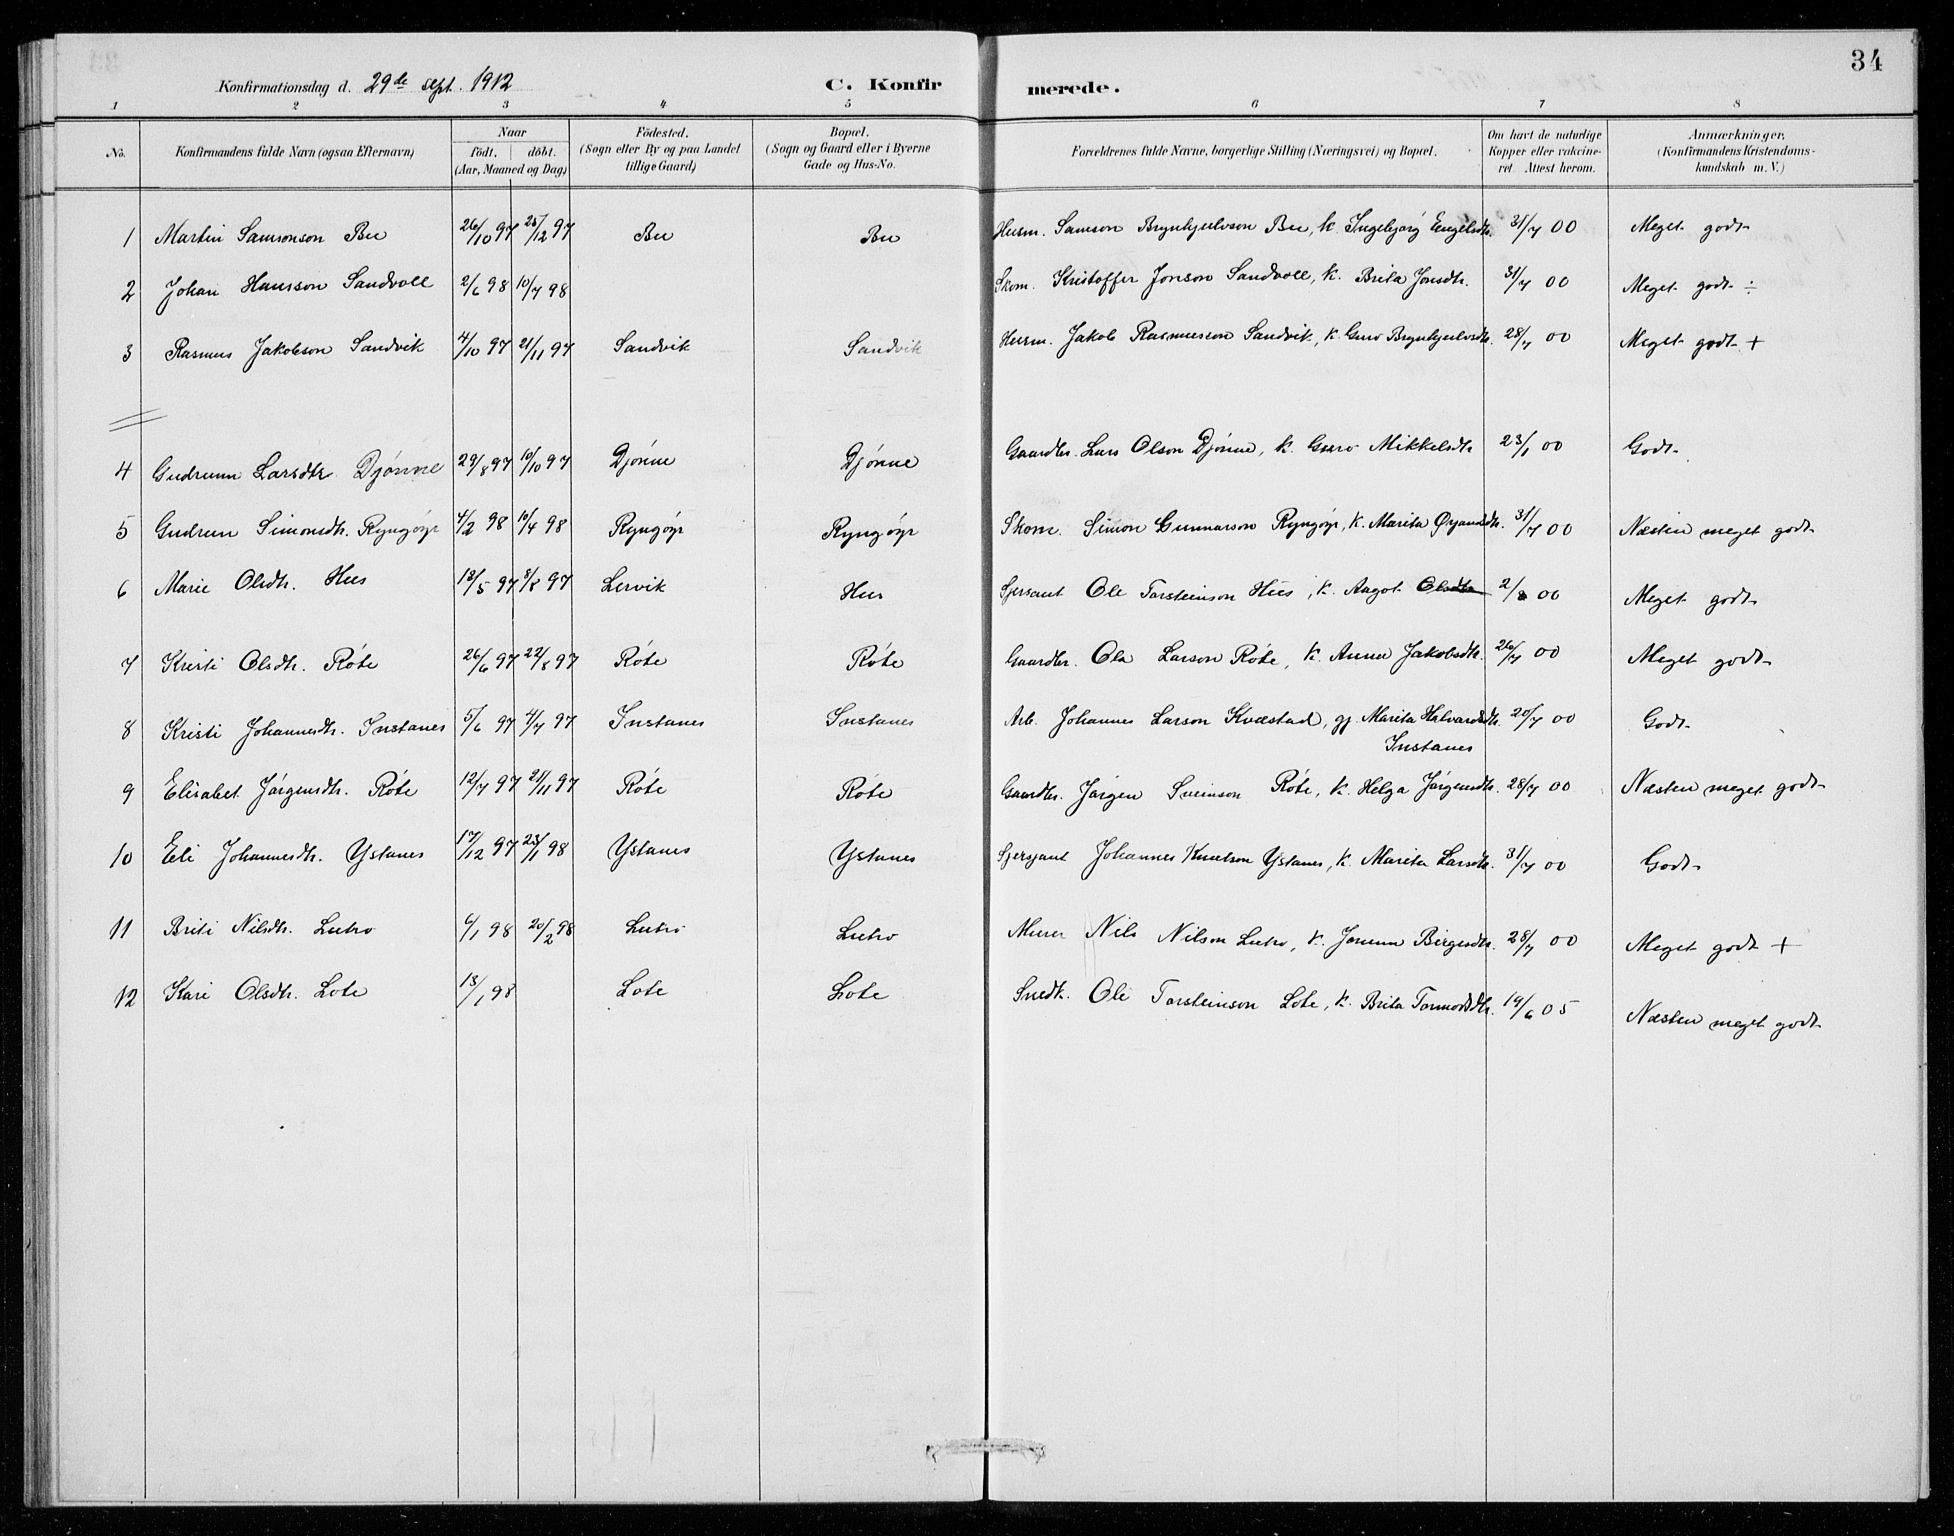 34
Konfirmationsdag d. 29de sept. 1912 C. Konfirmerede.
1 2 3 4 5 6 7 8
No. Konfirmandens fulde Navn (ogsaa Efternavn) Naar födt. döbt. (Aar, Maaned og Dag) Födested. (Sogn eller By og paa Landet tillige Gaard) Bopæl. (Sogn og Gaard eller i Byerne Gade og Hus-No. Forældrenes fulde Navne, borgerlige Stilling (Næringsvei) og Bopæl. Om havt de naturlige Kopper eller vakcineret. Attest herom. Anmærkninger, (Konfirmandens Kristendomskundskab m. V.)
1 Martin Samsonson Bu 26/10 97 25/12 97 Bu Bu Husm. Samson Brynhjulvson Bu, k. Ingebjørg Engelsdtr. 31/7 00 Meget godt
2 Johan Hansson Sandvoll 2/6 98 10/7 98 Skom. Kristoffer Jonson Sandvoll, k. Brita Jonsdtr. 31/7 00 Meget godt ÷
3 Rasmus Jakobson Sandvik 4/10 97 21/11 97 Sandvik Sandvik Husm. Jakob Rasmusson Sandvik, k. Guro Brynhjulvsdtr. 28/7 00 Meget godt +
4 Gudrunn Larsdtr. Djönne 29/8 97 10/10 97 Djönne Djönne Gaardbr. Lars Olson Djönne, k. Guro Mikkelsdtr 23/1 00 Godt
5 Gudrun Simonsdtr. Ryngöyr 4/2 98 10/4 98 Ryngöyr Ryngöyr Skom. Simon Gunnarson Ryngöyr, k. Marita Ørjansdtr. 31/7 00 Næsten meget godt
6 Marie Olsdtr. Hus 18/5 97 8/8 97 Lervik Hus Sjersant Ole Torsteinson Hus, k. Aagot Olsdtr 2/8 00 Meget godt
7 Kristi Olsdtr. Röte 26/6 97 22/8 97 Röte Röte Gaardbr. Ola Larson Röte, k. Anna Jakobsdtr. 26/7 00 Meget godt
8 Kristi Johannesdtr. Instanes 5/6 97 4/7 97 Instanes Instanes Arb. Johannes Larson Kvæstad, gj. Marita Halvardsdtr. Instanes 20/7 00 Godt
9 Elisabet Jörgensdtr. Röte 12/7 97 21/11 97 Röte Röte Gaardbr. Jörgen Sveinson Röte, k. Helga Jörgensdtr. 28/7 00 Næsten meget godt
10 Eli Johannesdtr. Ystanes 17/12 97 23/1 98 Ystanes Ystanes Sjersjant Johannes Knutson Ystanes, k. Marita Larsdtr. 31/7 00 Godt
11 Briti Nilsdtr. Lutro 6/1 98 20/2 98 Lutro Lutro Murer Nils Nilson Lutro, k. Jorunn Birgesdtr. 28/7 00 Meget godt +
12 Kari Olsdtr. Lote 13/1 98 Lote Lote Snedk. Ole Torsteinson Lote, k. Brita Tormodsdtr. 19/6 05 Næsten meget godt